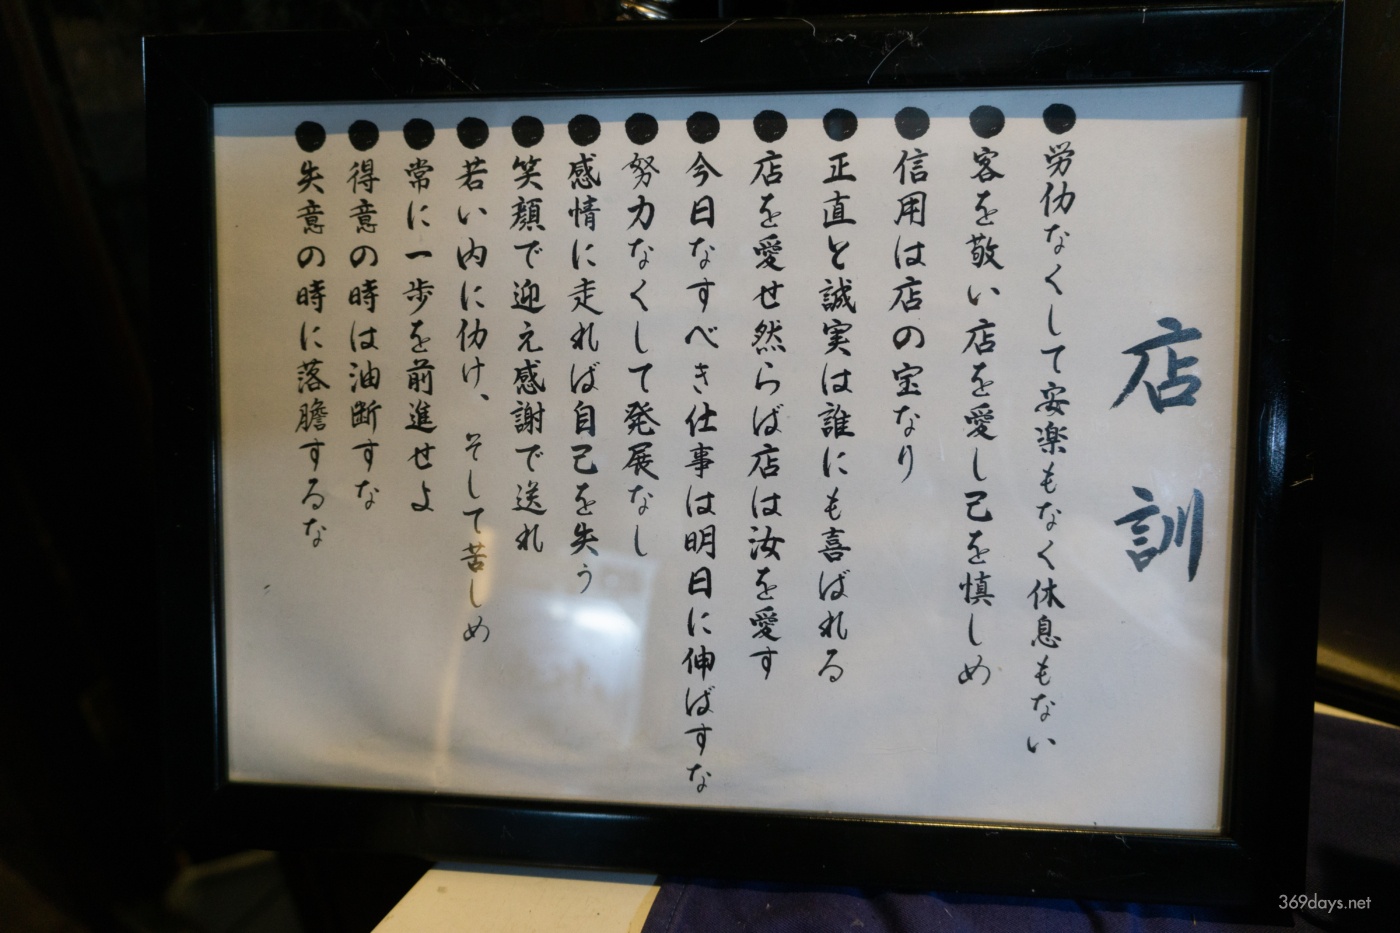 店訓
●労仂なくして安楽もなく休息もない
●客を敬い店を愛し己を慎しめ
●信用は店の宝なり
●正直と誠実は誰にも喜ばれる
●店を愛せ然らば店は汝を愛す
●今日なすべき仕事は明日に伸ばすな
●努力なくして発展なし
●感情に走れば自己を失う
●笑顔で迎え感謝で送れ
●若い内に仂け、そして苦しめ
●常に一歩を前進せよ
●得意の時は油断すな
●失意の時に落膽するな
369days.net